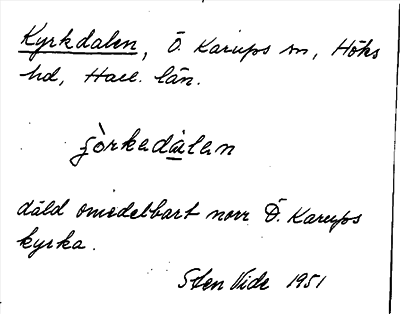 Kyrkdalen, Ö. Karups sn, Höks
hd, Hall. län.
çòrkedàlen
däld omedelbart norr Ö. Karups
kyrka.
Sten Vide 1951